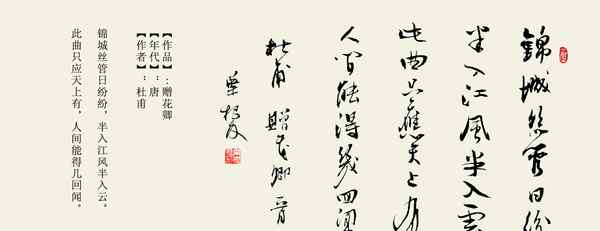 锦城丝管日纷
半入江风半入云
此曲只應天上有
人间能得几回闻
杜甫 赠花卿
【作品】：赠花卿
【年代】：唐
【作者】：杜甫
锦城丝管日纷纷，半入江风半入云。
此曲只应天上有，人间能得几回闻。